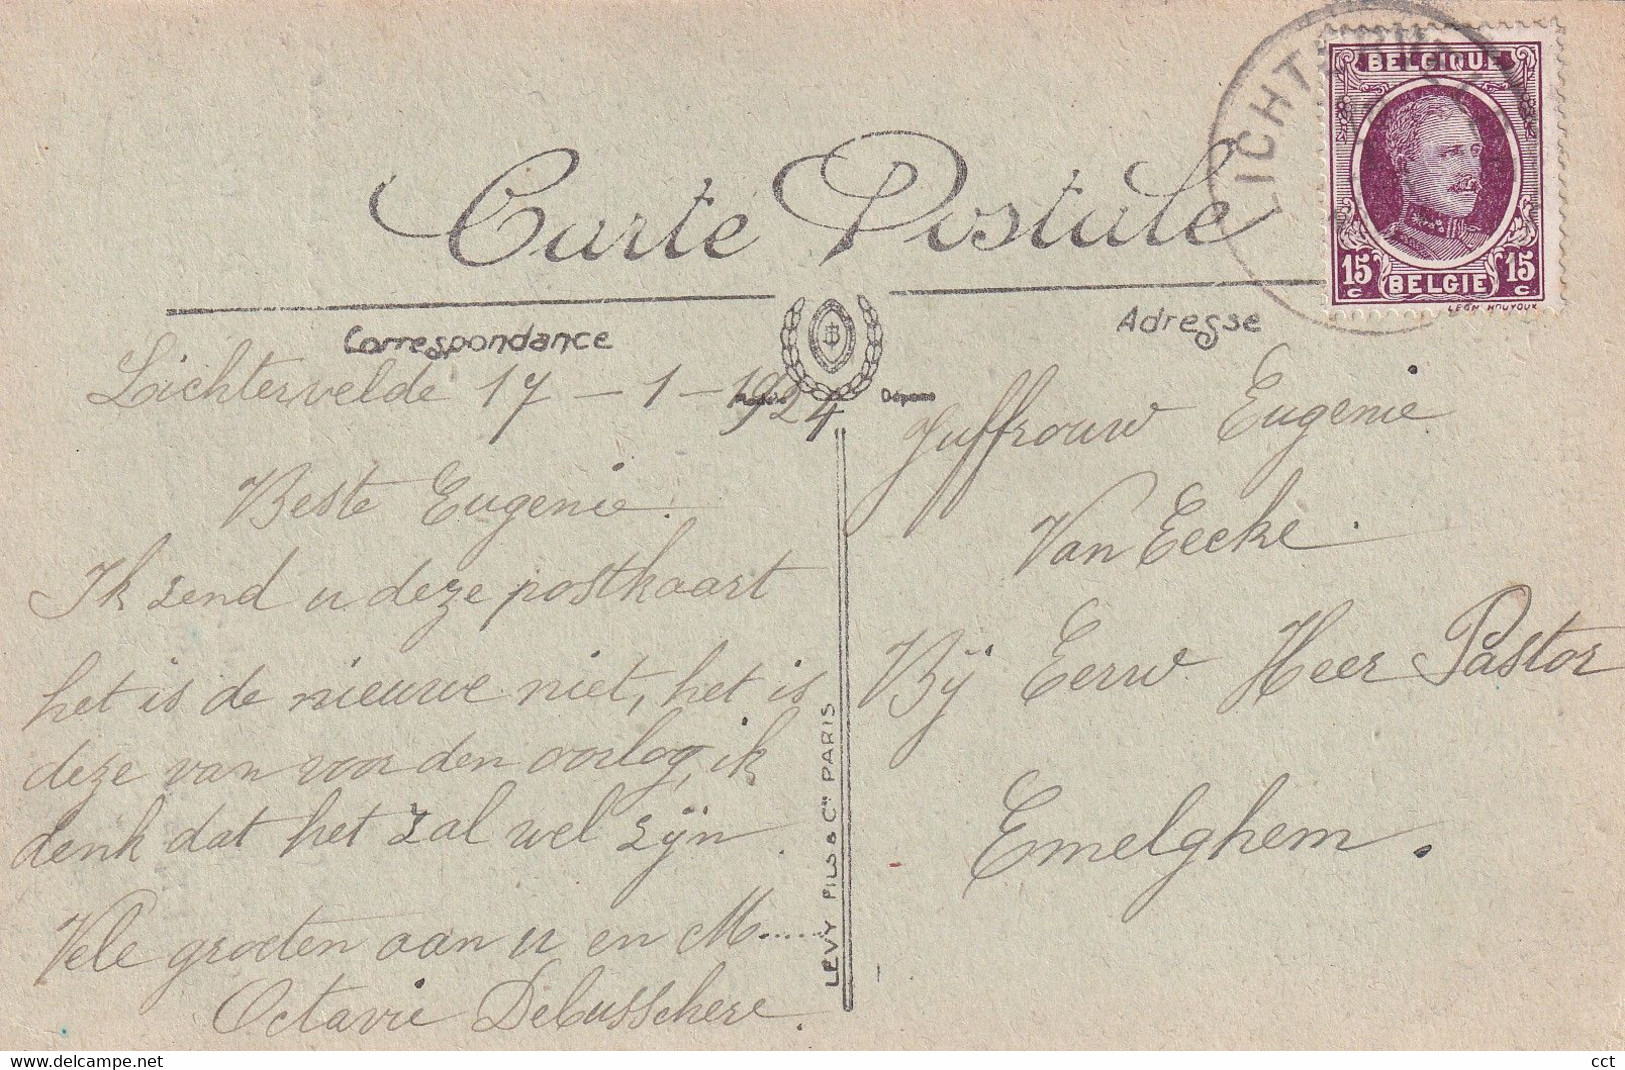 Carte Postale
LICHTERV
BELGIQUE
15 c
15 c
BELGIE
LEON HOUYOUX
Correspondance
Adresse
Lichtervelde 17 - 1 - 1924
Beste Eugenie.
Ik zend u deze postkaart
het is de nieuwe niet, het is
deze van voor den oorlog, ik
denk dat het zal wel zijn.
Vele groeten aan u en M......
Octavie Debusschere.
LEVY FILS & Cie PARIS
Juffrouw Eugenie
Van Eecke.
Bij Eerw Heer Pastor
Emelghem.
delcampe.net
cct